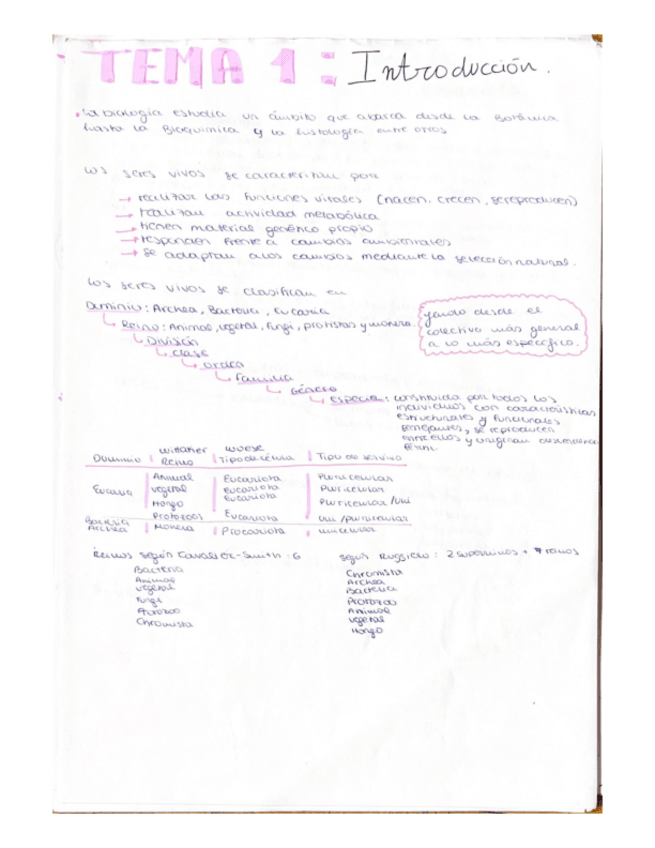 TEMA 1: Introducción.
La biología estudia un ámbito que abarca desde la Botánica
hasta la Bioquímica y la histología entre otros
Los seres vivos se caracterizan por
→ realizar las funciones vitales (nacen, crecen, se reproducen)
→ realizan actividad metabólica
→ tienen material genético propio
→ responden frente a cambios ambientales
→ se adaptan a los cambios mediante la selección natural.
Los seres vivos se clasifican en
Dominio: Archea, Bacteria, Eucaria
Reino: Animal, vegetal, fungi, protistas y monera.
División
clase
orden
familia
Género
especie: constituida por todos los
individuos con características
estructurales y funcionales
semejantes, se reproducen
entre ellos y originan descendencia
fértil
yendo desde el
colectivo más general
a lo más específico.
Dominio | Whittaker Reino | Woese Tipo de célula | Tipo de ser vivo
Eucaria | Animal | Eucariota | Pluricelular
vegetal | eucariota | Pluricelular
Hongo | eucariota | Pluricelular /uni
Protozoos | Eucariota | uni /pluricelular
Bacteria Archea | Monera | Procariota | unicelular
Reinos según Cavalier-Smith: 6
Bacteria
Animal
vegetal
Fungi
Protozoo
Chromista
según Ruggiero: 2 superreinos + 7 reinos
Chromista
Archea
Bacteria
Protozoo
Animal
vegetal
Hongo